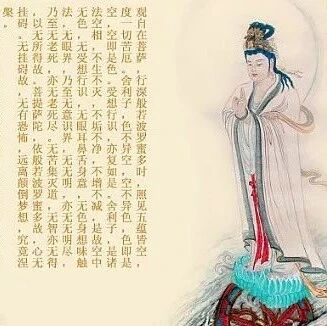 观自在菩萨，行深般若波罗蜜多时，照见五蕴皆空，
度一切苦厄。舍利子，色不异空，空不异色，色即是
空，空即是色。受想行识亦复如是，舍利子，是诸
法空相，不生不灭，不垢不净，不增不减，是故空中
无色，无受想行识，无眼耳鼻舌身意，无色身想味触
法，无眼界，乃至无意识界，无无明，亦无无明尽，
乃至无老死，亦无老死尽，无苦集灭道，无智亦无得
，以无所得故。善提萨陀，依般若波罗蜜多故，心无
挂碍。无挂碍故，无有恐怖，远离颠倒梦想，究竟涅
槃。